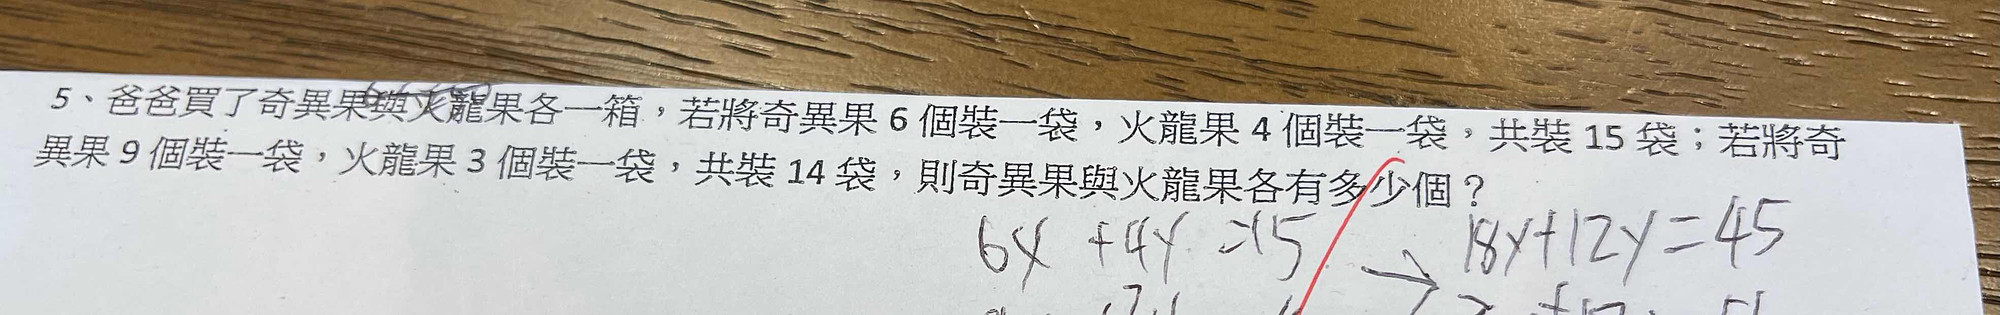 5、爸爸買了奇異果與火龍果各一箱，若將奇異果 6 個裝一袋，火龍果 4 個裝一袋，共裝 15 袋；若將奇
異果 9 個裝一袋，火龍果 3 個裝一袋，共裝 14 袋，則奇異果與火龍果各有多少個？
6x +4y =15 → 18x+12y=45